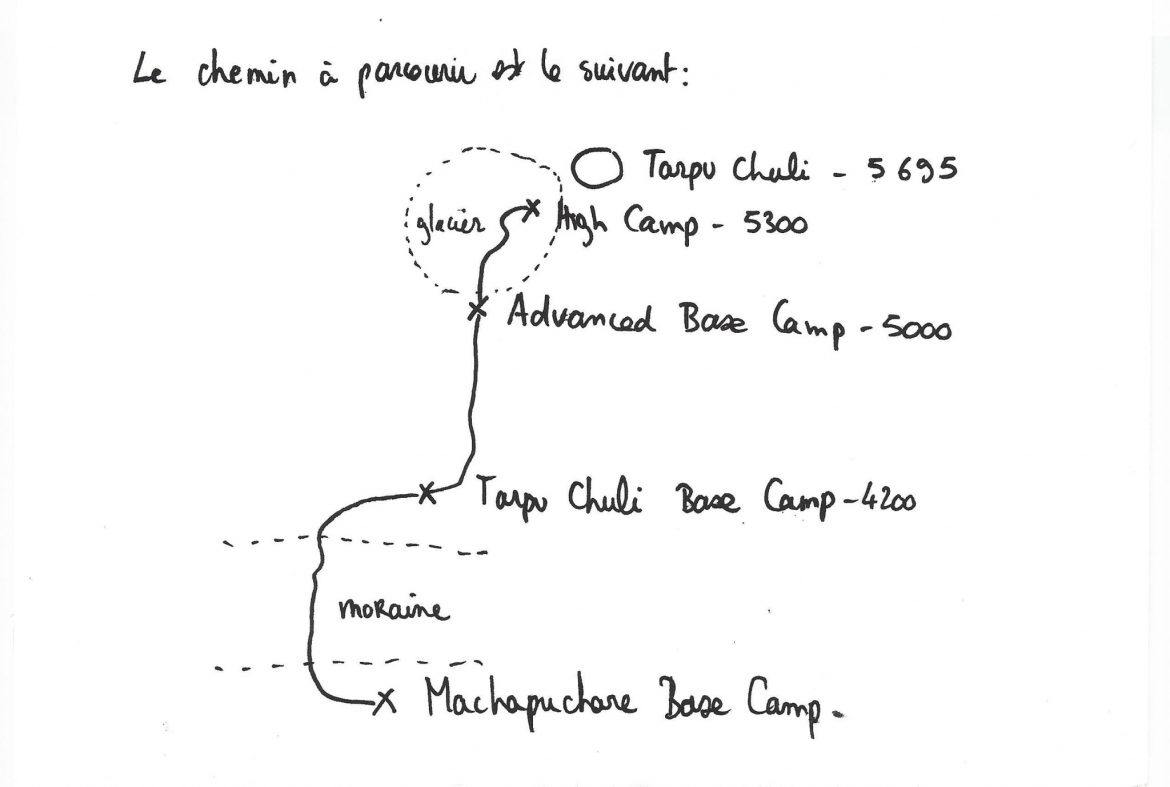 Le chemin à parcourir est le suivant:
Tarpu Chuli - 5695
glacier
High Camp - 5300
Advanced Base Camp - 5000
Tarpu Chuli Base Camp - 4200
moraine
Machapuchare Base Camp.